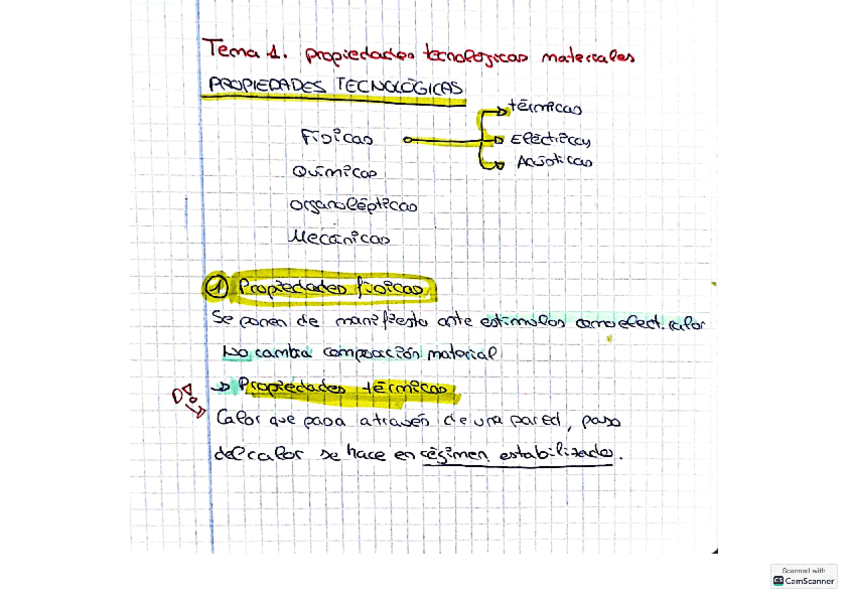 Tema 1. propiedades tecnológicas materiales
PROPIEDADES TECNOLÓGICAS
térmicas
Físicas
Eléctricas
Acústicas
Químicas
organolépticas
Mecánicas
① Propiedades físicas
Se ponen de manifiesto ante estímulos como elect. calor
No cambia composición material
→ Propiedades térmicas
Calor que pasa através de una pared, paso
del calor se hace en régimen estabilizado.
Scanned with
CS CamScanner